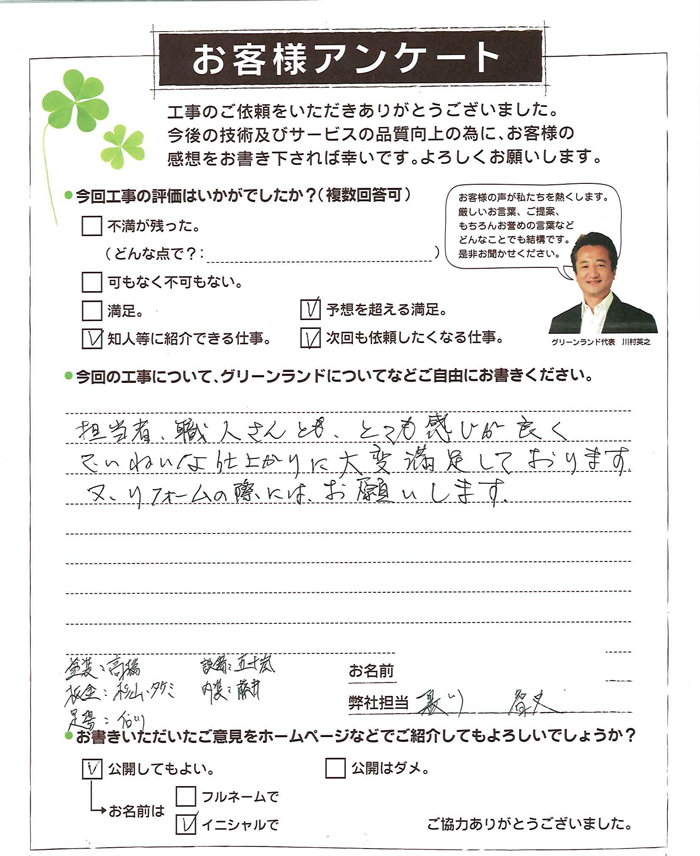 お客様アンケート
工事のご依頼をいただきありがとうございました。
今後の技術及びサービスの品質向上の為に、お客様の
感想をお書き下されば幸いです。よろしくお願いします。
今回工事の評価はいかがでしたか?(複数回答可)
お客様の声が私たちを熱くします。
厳しいお言葉、ご提案、
もちろんお誉めの言葉など
どんなことでも結構です。
是非お聞かせください。
不満が残った。
(どんな点で?: )
可もなく不可もない。
満足。
予想を超える満足。
知人等に紹介できる仕事。
次回も依頼したくなる仕事。
グリーンランド代表 川村英之
今回の工事について、グリーンランドについてなどご自由にお書きください。
担当者、職人さんとも、とても感じが良く
ていねいな仕上がりに大変満足しております。
又、リフォームの際には、お願いします。
塗装:高橋
板金:杉山、タケミ 内装:藤井
足場:
お名前
弊社担当
お書きいただいたご意見をホームページなどでご紹介してもよろしいでしょうか?
公開してもよい。
公開はダメ。
お名前は
フルネームで
イニシャルで
ご協力ありがとうございました。